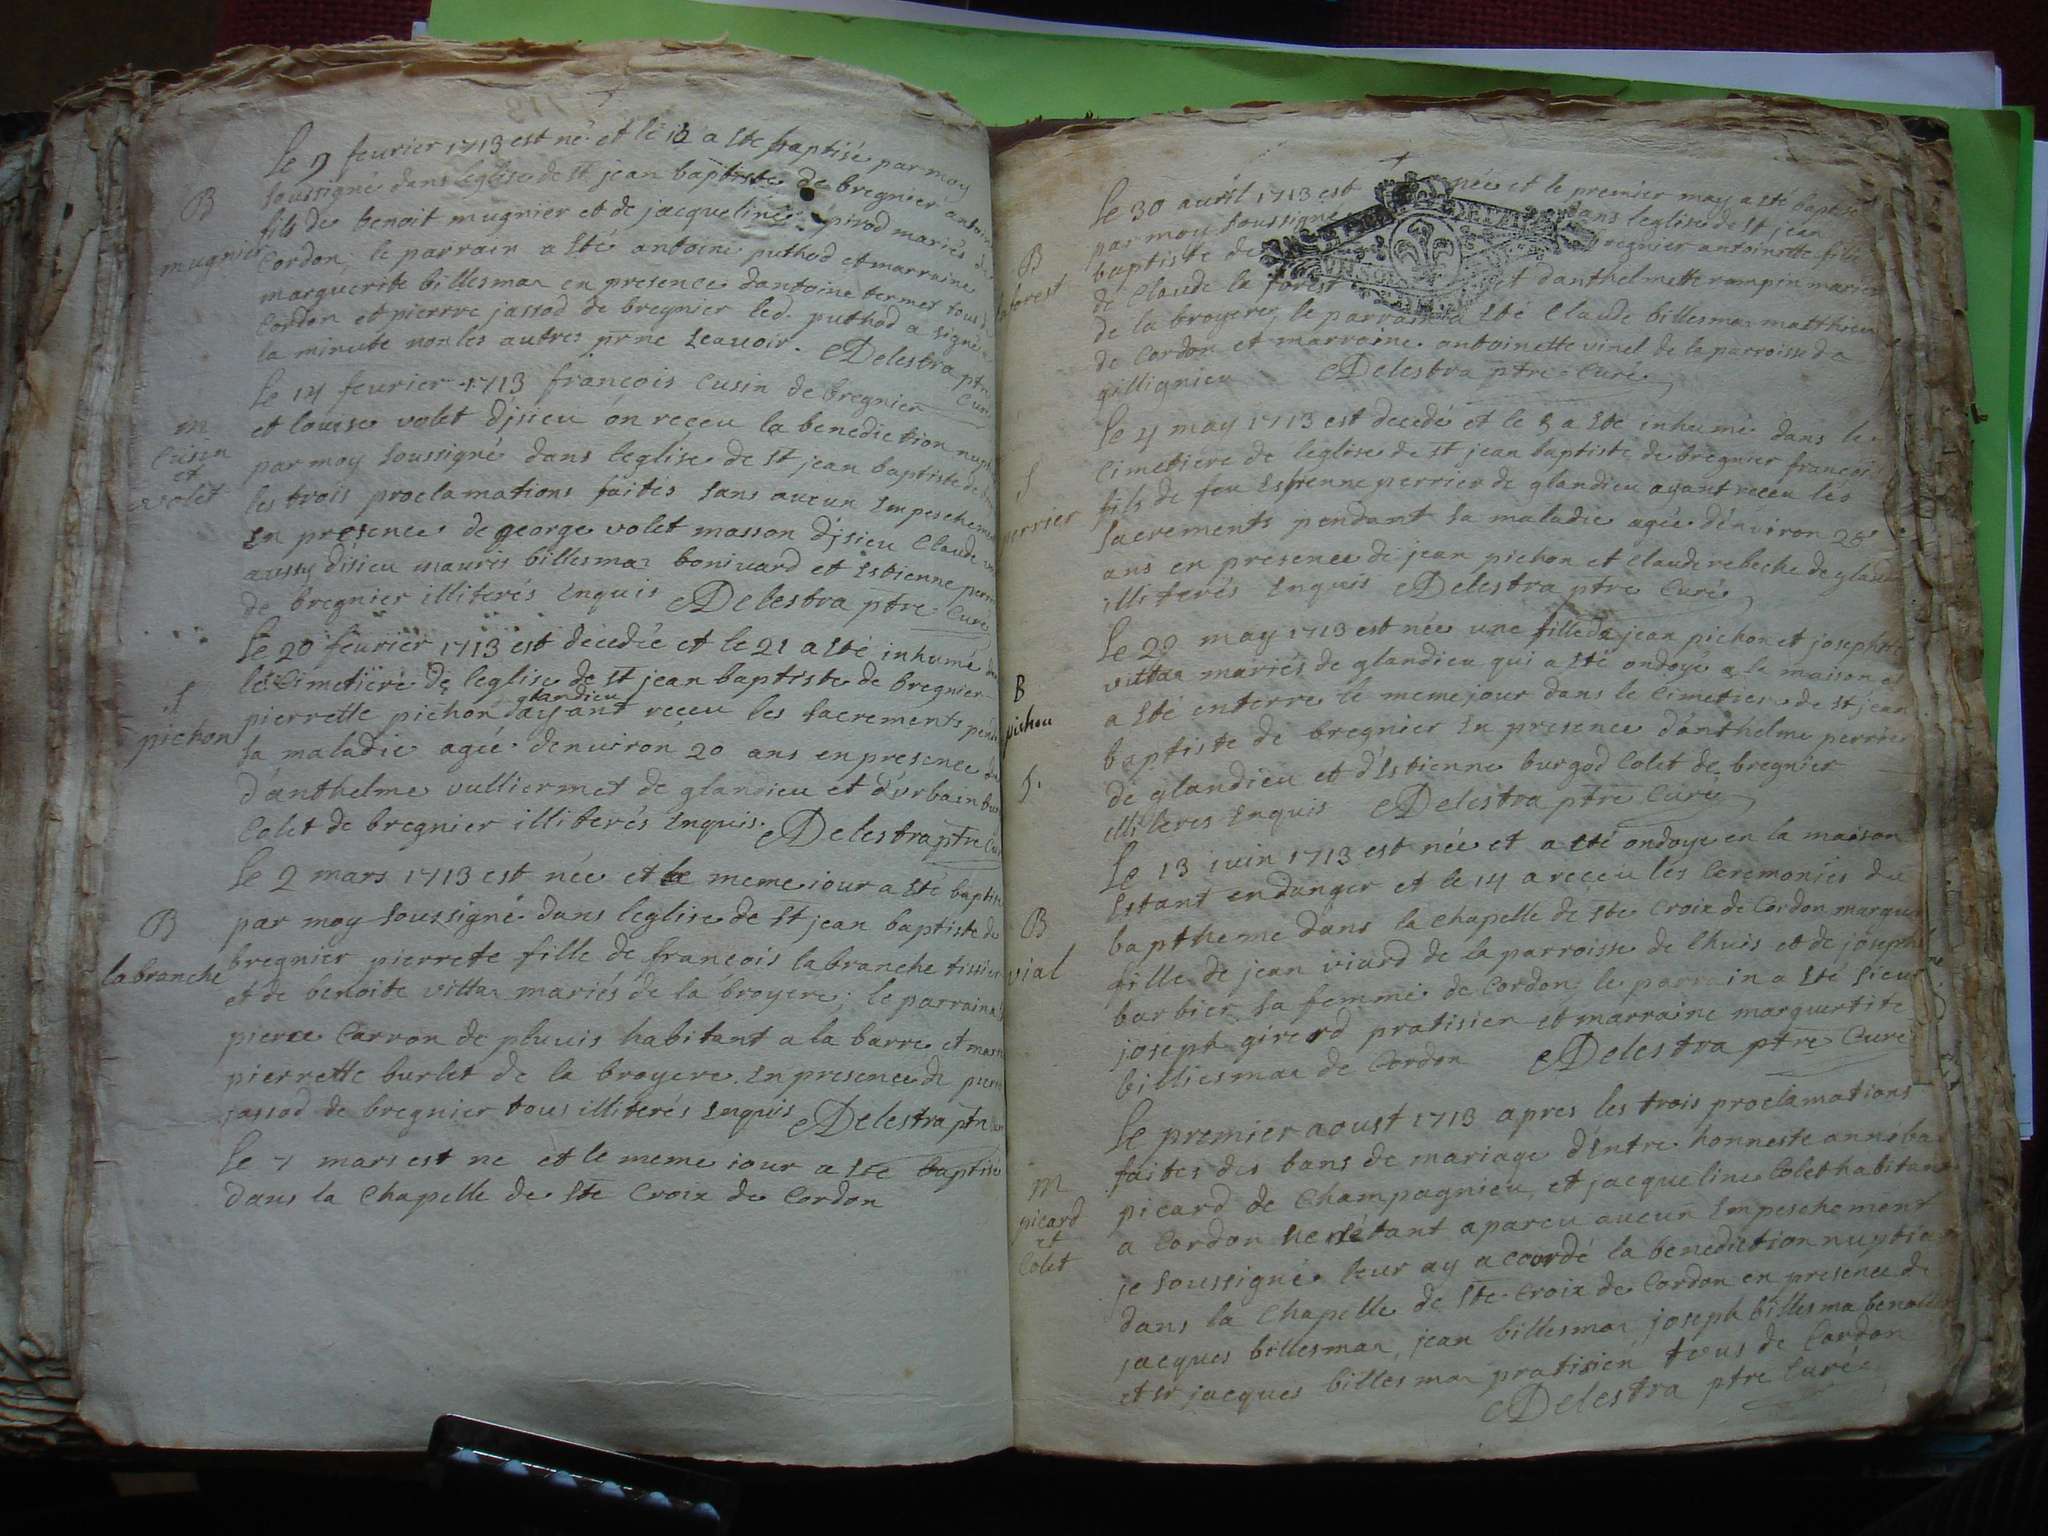 Le 9 feurier 1713 est né et le 12 a esté baptisé par moy
soussigné dans leglise de st jean baptiste de bregnier antoin
B
fils de benoit mugnier et de jacqueline pirod mariés de
mugnier
Cordon, le parrain a esté antoine puthod et marraine
marguerite billesmaz en presence dantoine termet tous d
Cordon et pierrre jassod de bregnier led. puthod a signé
la minute non les autres pr ne scauoir. Delestra ptre
Curé
Le 14 feurier 1713 françois Cusin de bregnier
et louise volet d'jsieu on receu la benediction nupt
m
Cusin
et
volet
par moy soussigné dans leglise de st jean baptiste de
les trois proclamations faites sans aucun Empeschemen
En presence de george volet masson d'jsieu Claude
aussy disieu mauris billesmaz boniuard et Estienne perri
de bregnier illiterés Enquis Delestra ptre Curé
Le 20 feurier 1713 est decedée et le 21 a esté inhumé
le Cimetiere de leglise de st jean baptiste de bregnier
glandieu
S
pichon
pierrette pichon ayant receu les sacrements pend
sa maladie agée denuiron 20 ans en presence
d'anthelme vulliermet de glandieu et d'urbain bur
Colet de bregnier illiterés Enquis. Delestra ptre Cu
Le 2 mars 1713 est née et le meme iour a esté baptis
B
labranche
par moy soussigné dans leglise de st jean baptiste de
bregnier pierrete fille de françois labranche tissier
et de benoite vittaz mariés de la broyere; le parrain a
pierre Carron de pluuis habitant a la barre et marr
pierrette burlet de la broyere. En presence de pierr
jassod de bregnier tous illiterés Enquis Delestra ptre
Le 7 mars est ne et le meme iour a este baptisé
dans la Chapelle de Ste Croix de Cordon
Le 30 auril 1713 est née et le premier may a esté baptisé
par moy soussigné dans leglise de st jean
B
laforest
baptiste de bregnier antoinette fille
de Claude la forest et danthelmette rampin mariés
de la broyere, le parrain a esté Claude billesmaz matthieu
de Cordon et marraine antoinette vinel de la parroisse de
gillignieu Delestra ptre Curé
Le 4 may 1713 est decedé et le 5 a esté inhumé dans le
Cimetiere de leglise de st jean baptiste de bregnier françois
S
perrier
fils de feu Estienne perrier de glandieu ayant receu les
sacrements pendant sa maladie agée d'enuiron 28
ans en presence de jean pichon et Claude rebeche de gland
illiterés Enquis Delestra ptre Curé
Le 29 may 1713 est née une fille de jean pichon et josephte
B
pichon
vittaz mariés de glandieu qui a esté ondoyé a la maison et
a esté enterre le meme jour dans le Cimetiere de st jean
baptiste de bregnier En presence d'anthelme perrier
S.
de glandieu et d'Estienne burgod Colet de bregnier
illiteres Enquis Delestra ptre Curé
Le 13 iuin 1713 est née et a esté ondoyé en la maison
Estant en danger et le 14 a receu les Ceremonies du
B
vial
baptheme dans la Chapelle de Ste Croix de Cordon margue
fille de jean viard de la parroisse de lhuis et de joseph
barbier sa femme de Cordon, le parrain a esté sieur
joseph girerd pratisien et marraine marguerite
billiesmaz de Cordon Delestra ptre Curé
Le premier aoust 1713 apres les trois proclamations
faites des bans de mariage d'Entre honneste anneba
m
picard
et
Colet
picard de Champagnieu, et jacqueline Colet habitan
a Cordon ne s'étant aparcu aucun Empeschement
je soussigné leur ay acourdé la benediction nuptia
dans la Chapelle de Ste Croix de Cordon en presence de
jacques billesmaz, jean billesmaz joseph billesma benoit
et sr jacques billesmaz pratisien tous de Cordon
Delestra ptre Curé